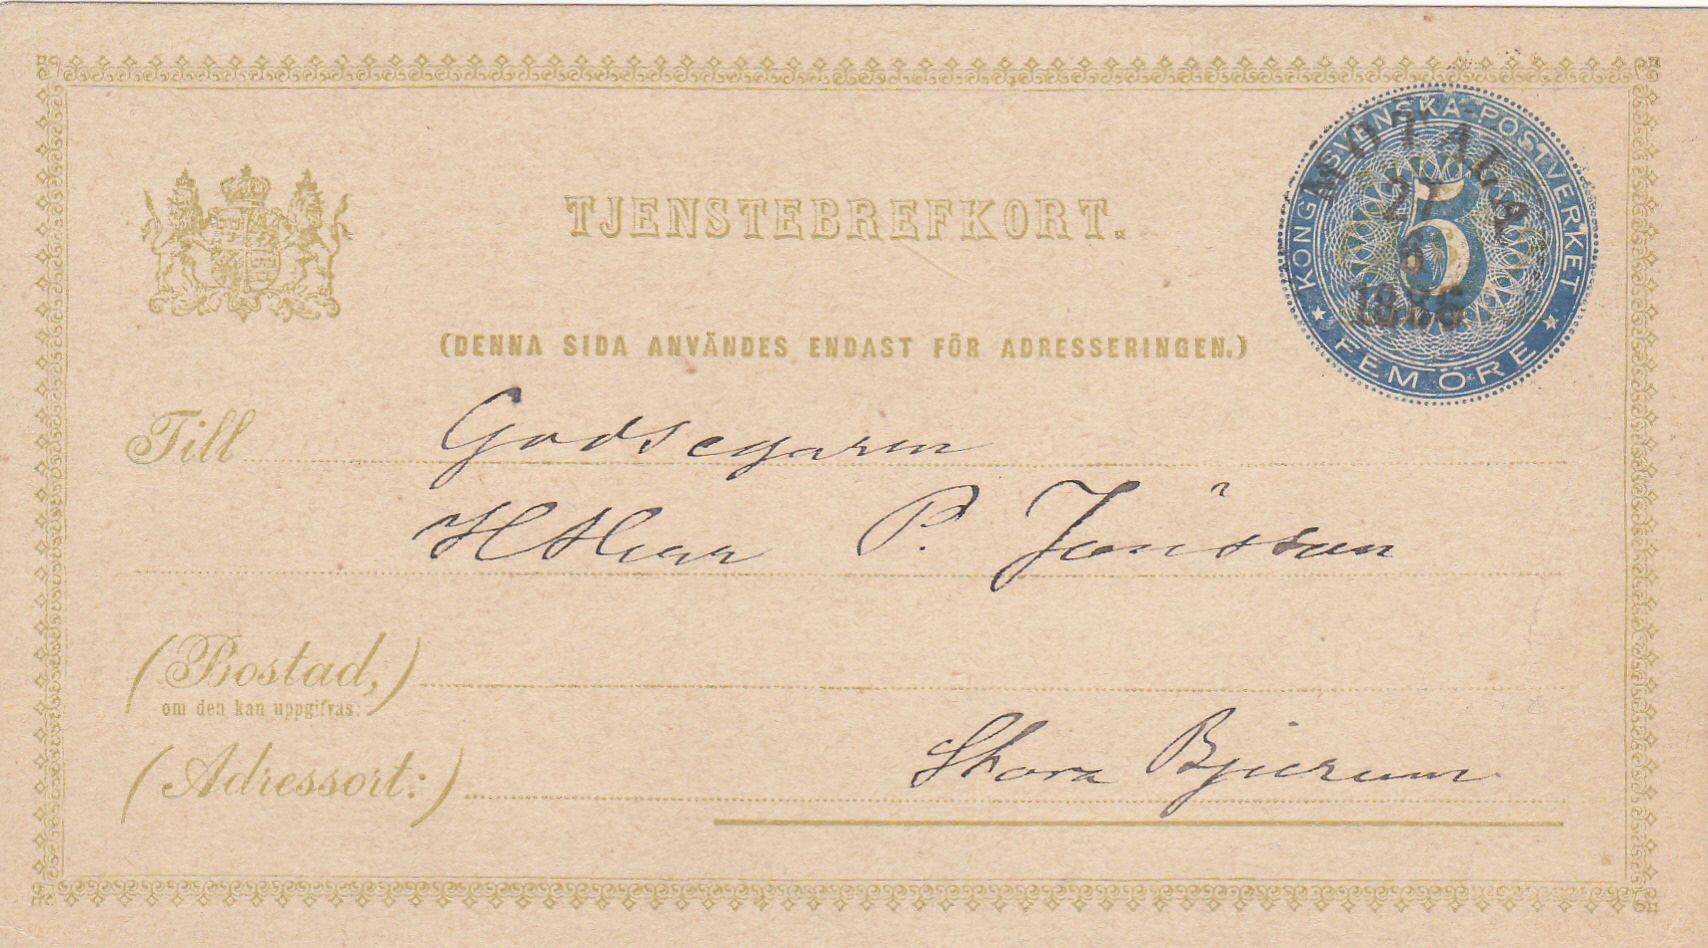 TJENSTEBREFKORT.
KONGL. SVENSKA POSTVERKET
5
FEM ÖRE
MOTALA
21
6
1886
(DENNA SIDA ANVÄNDES ENDAST FÖR ADRESSERINGEN.)
Till Godsegaren
P. Jonsson
(Bostad,)
om den kan uppgifvas:
(Adressort:) Stora Bjerum